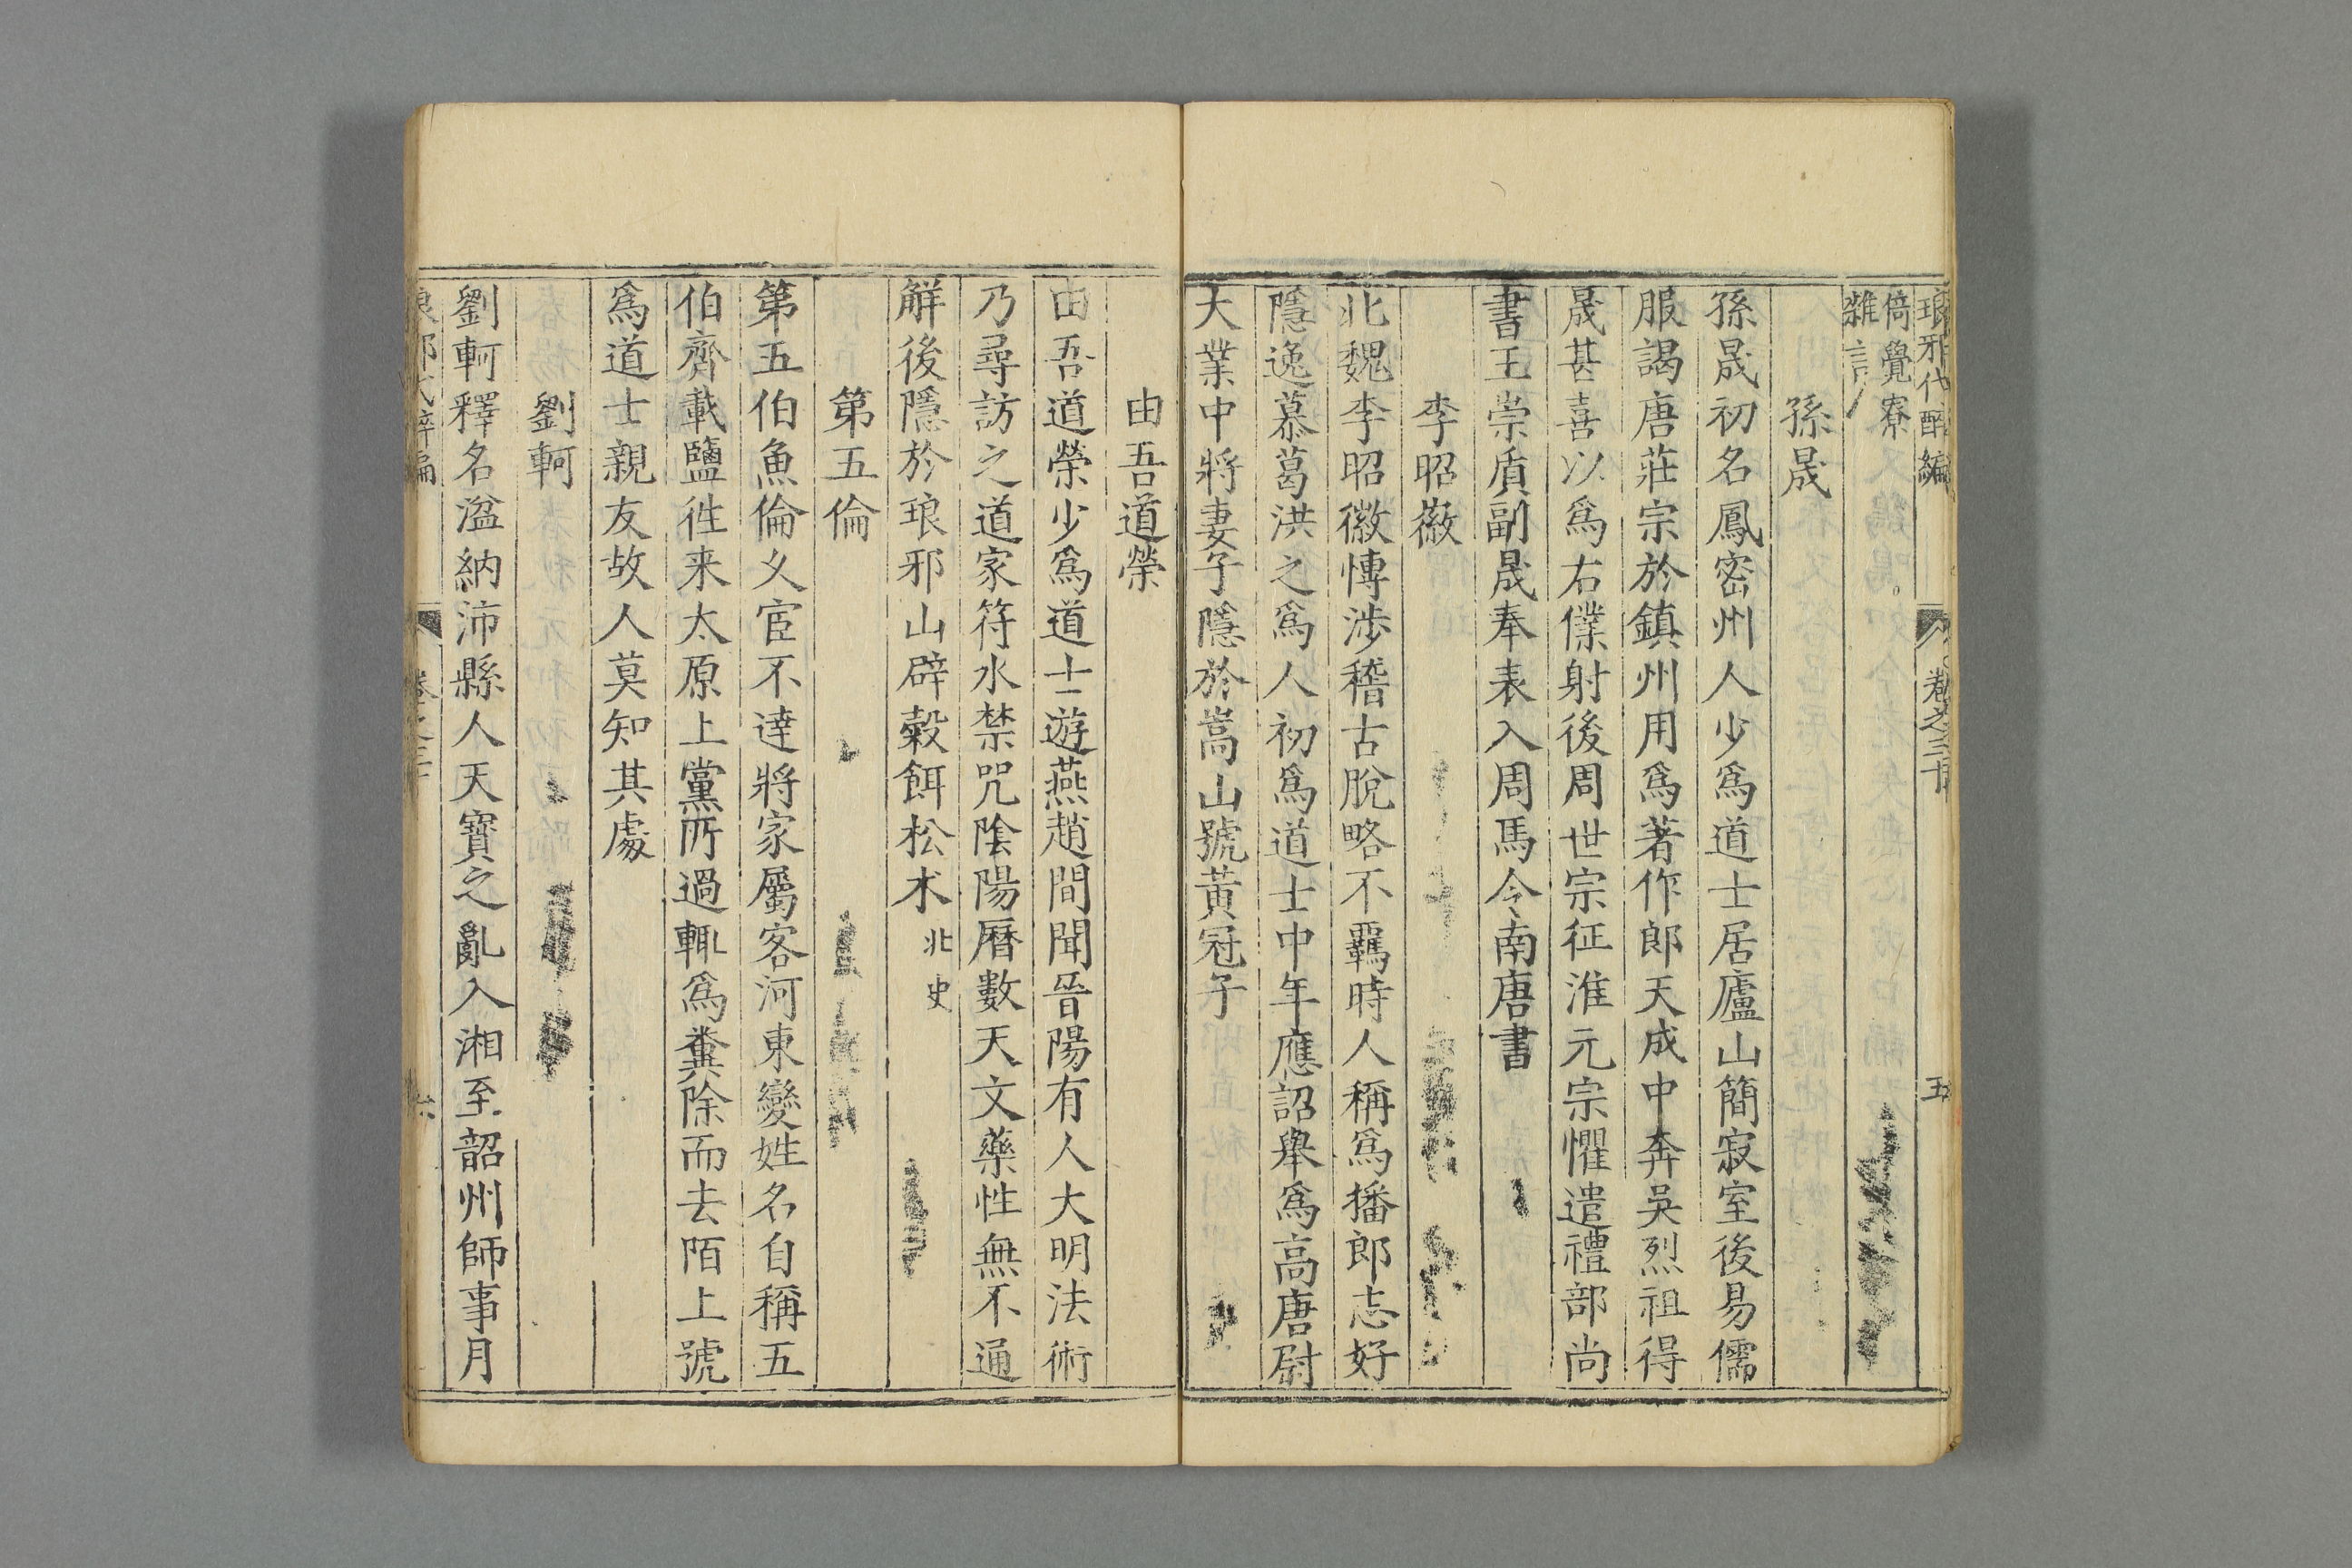 琅邪代醉編 卷之三十 五
倚覺寮
雜記
孫晟
孫晟初名鳳密州人少爲道士居廬山簡寂室後易儒
服謁唐莊宗於鎮州用爲著作郎天成中奔吳烈祖得
晟甚喜以爲右僕射後周世宗征淮元宗懼遣禮部尚
書王崇質副晟奉表入周馬令南唐書
李昭徽
北魏李昭徽慱涉稽古脫略不羈時人稱爲播郎志好
隱逸慕葛洪之爲人初爲道士中年應詔舉爲高唐尉
大業中將妻子隱於嵩山號黃冠子
由吾道榮
由吾道榮少爲道士遊燕趙間聞晉陽有人大明法術
乃尋訪之道家符水禁咒陰陽曆數天文藥性無不通
解後隱於琅邪山辟穀餌松术 北史
第五倫
第五伯魚倫乆宦不達將家屬客河東變姓名自稱五
伯齊載鹽徃来太原上黨所過輒爲糞除而去陌上號
爲道士親友故人莫知其處
劉軻
劉軻釋名湓納沛縣人天寶之亂入湘至韶州師事月